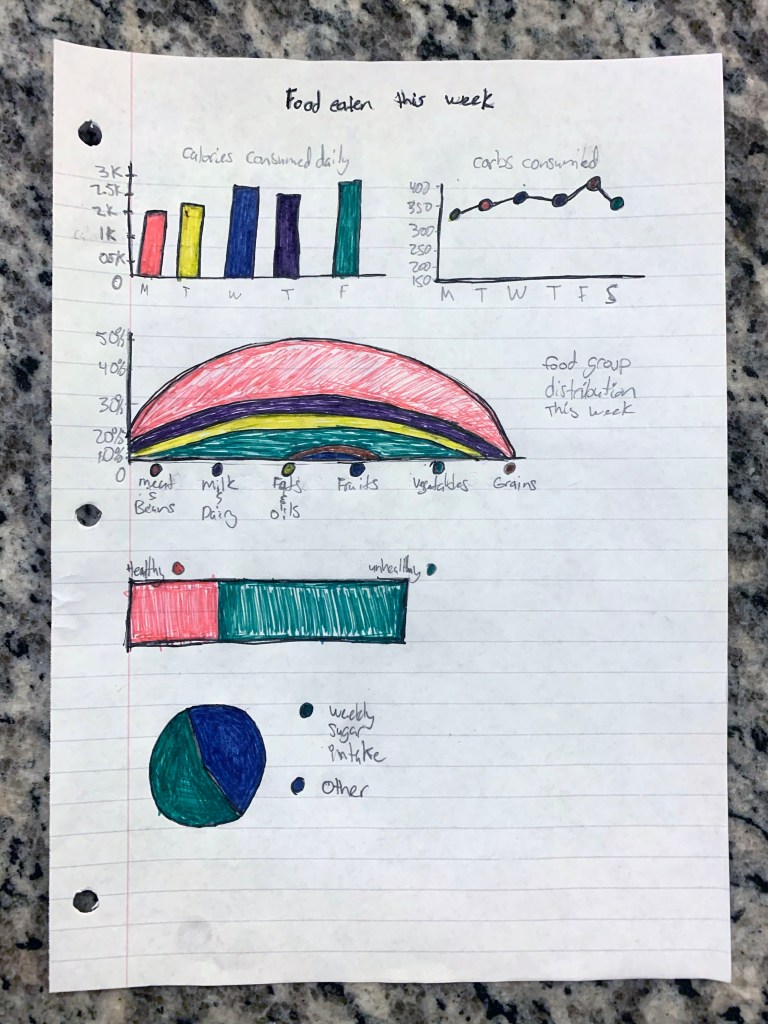 Food eaten this week
Calories consumed daily
3K
2.5K
2K
1K
05K
0
M T W T F
carbs consumed
400
350
300
250
200
150
M T W T F S
50%
40%
30%
20%
10%
0
Food group
distribution
This week
meat
&
Beans
Milk
&
Dairy
Fats
&
Oils
Fruits
Vegetables
Grains
Healthy
unhealthy
weekly
sugar
intake
Other